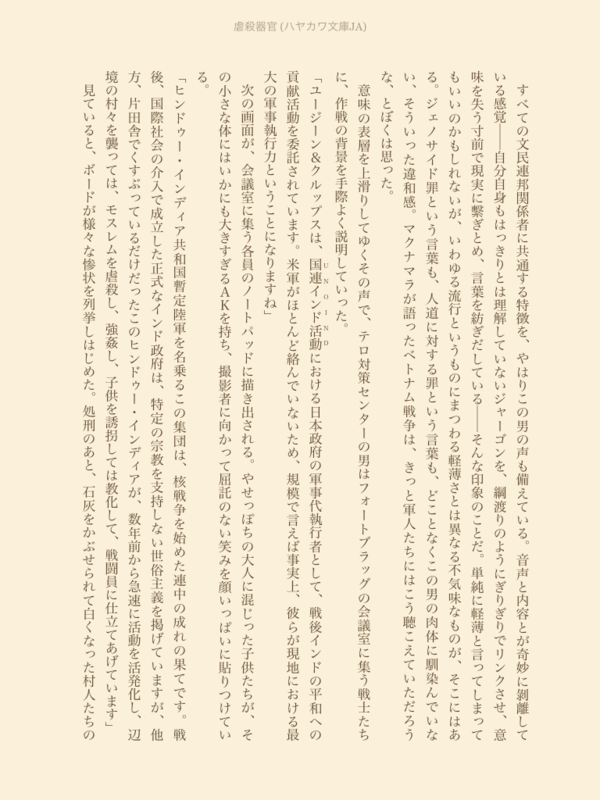 虐殺器官 (ハヤカワ文庫JA)
　すべての文民連邦関係者に共通する特徴を、やはりこの男の声も備えている。音声と内容とが奇妙に剝離して
いる感覚――自分自身もはっきりとは理解していないジャーゴンを、綱渡りのようにぎりぎりでリンクさせ、意
味を失う寸前で現実に繋ぎとめ、言葉を紡ぎだしている――そんな印象のことだ。単純に軽薄と言ってしまって
もいいのかもしれないが、いわゆる流行というものにまつわる軽薄さとは異なる不気味なものが、そこにはあ
る。ジェノサイド罪という言葉も、人道に対する罪という言葉も、どことなくこの男の肉体に馴染んでいな
い、そういった違和感。マクナマラが語ったベトナム戦争は、きっと軍人たちにはこう聴こえていただろう
な、とぼくは思った。
　意味の表層を上滑りしてゆくその声で、テロ対策センターの男はフォートブラッグの会議室に集う戦士たち
に、作戦の背景を手際よく説明していった。
「ユージーン＆クルップスは、国連インド活動における日本政府の軍事代執行者として、戦後インドの平和への
UNOIND
貢献活動を委託されています。米軍がほとんど絡んでいないため、規模で言えば事実上、彼らが現地における最
大の軍事執行力ということになりますね」
　次の画面が、会議室に集う各員のノートパッドに描き出される。やせっぽちの大人に混じった子供たちが、そ
の小さな体にはいかにも大きすぎるAKを持ち、撮影者に向かって屈託のない笑みを顔いっぱいに貼りつけてい
る。
「ヒンドゥー・インディア共和国暫定陸軍を名乗るこの集団は、核戦争を始めた連中の成れの果てです。戦
後、国際社会の介入で成立した正式なインド政府は、特定の宗教を支持しない世俗主義を掲げていますが、他
方、片田舎でくすぶっているだけだったこのヒンドゥー・インディアが、数年前から急速に活動を活発化し、辺
境の村々を襲っては、モスレムを虐殺し、強姦し、子供を誘拐しては教化して、戦闘員に仕立てあげています」
　見ていると、ボードが様々な惨状を列挙しはじめた。処刑のあと、石灰をかぶせられて白くなった村人たちの